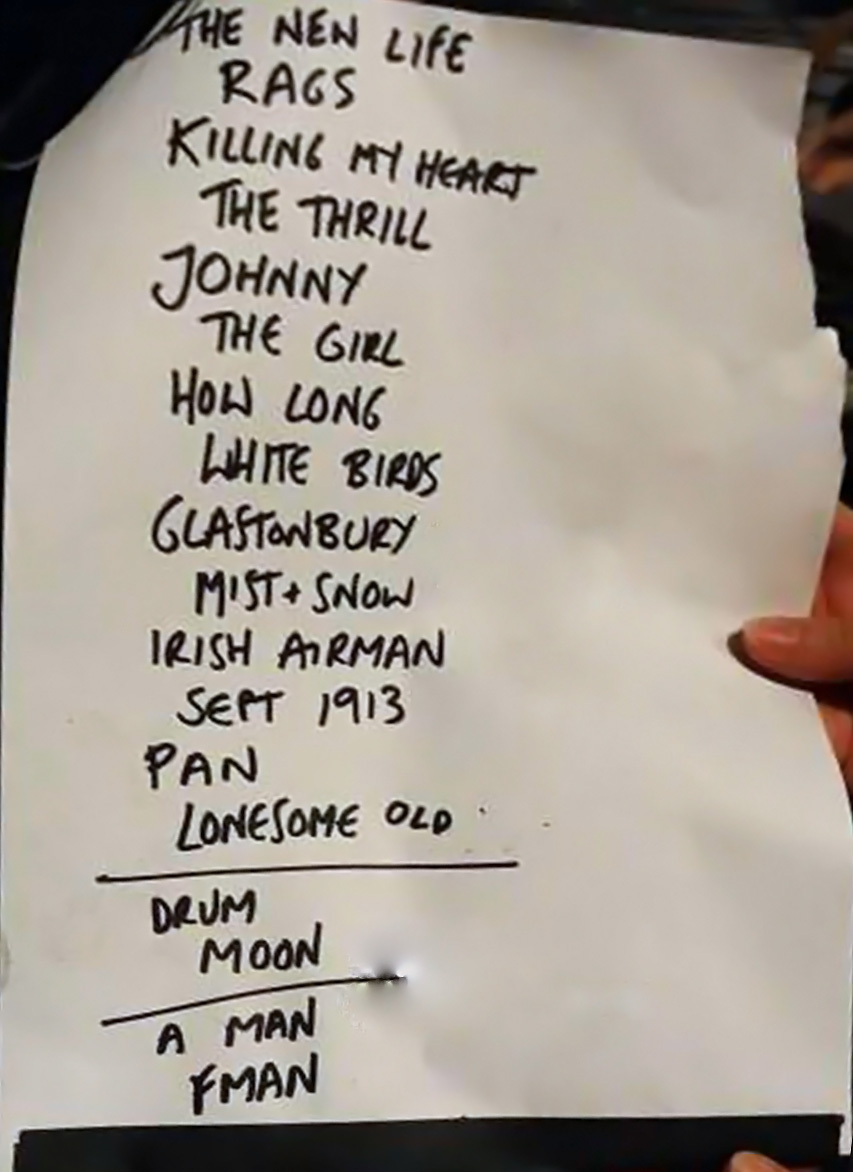 THE NEN LIFE
RAGS
KILLING MY HEART
THE THRILL
JOHNNY
THE GIRL
HOW LONG
WHITE BIRDS
GLASTONBURY
MIST + SNOW
IRISH AIRMAN
SEPT 1913
PAN
LONESOME OLD
DRUM
MOON
A MAN
FMAN